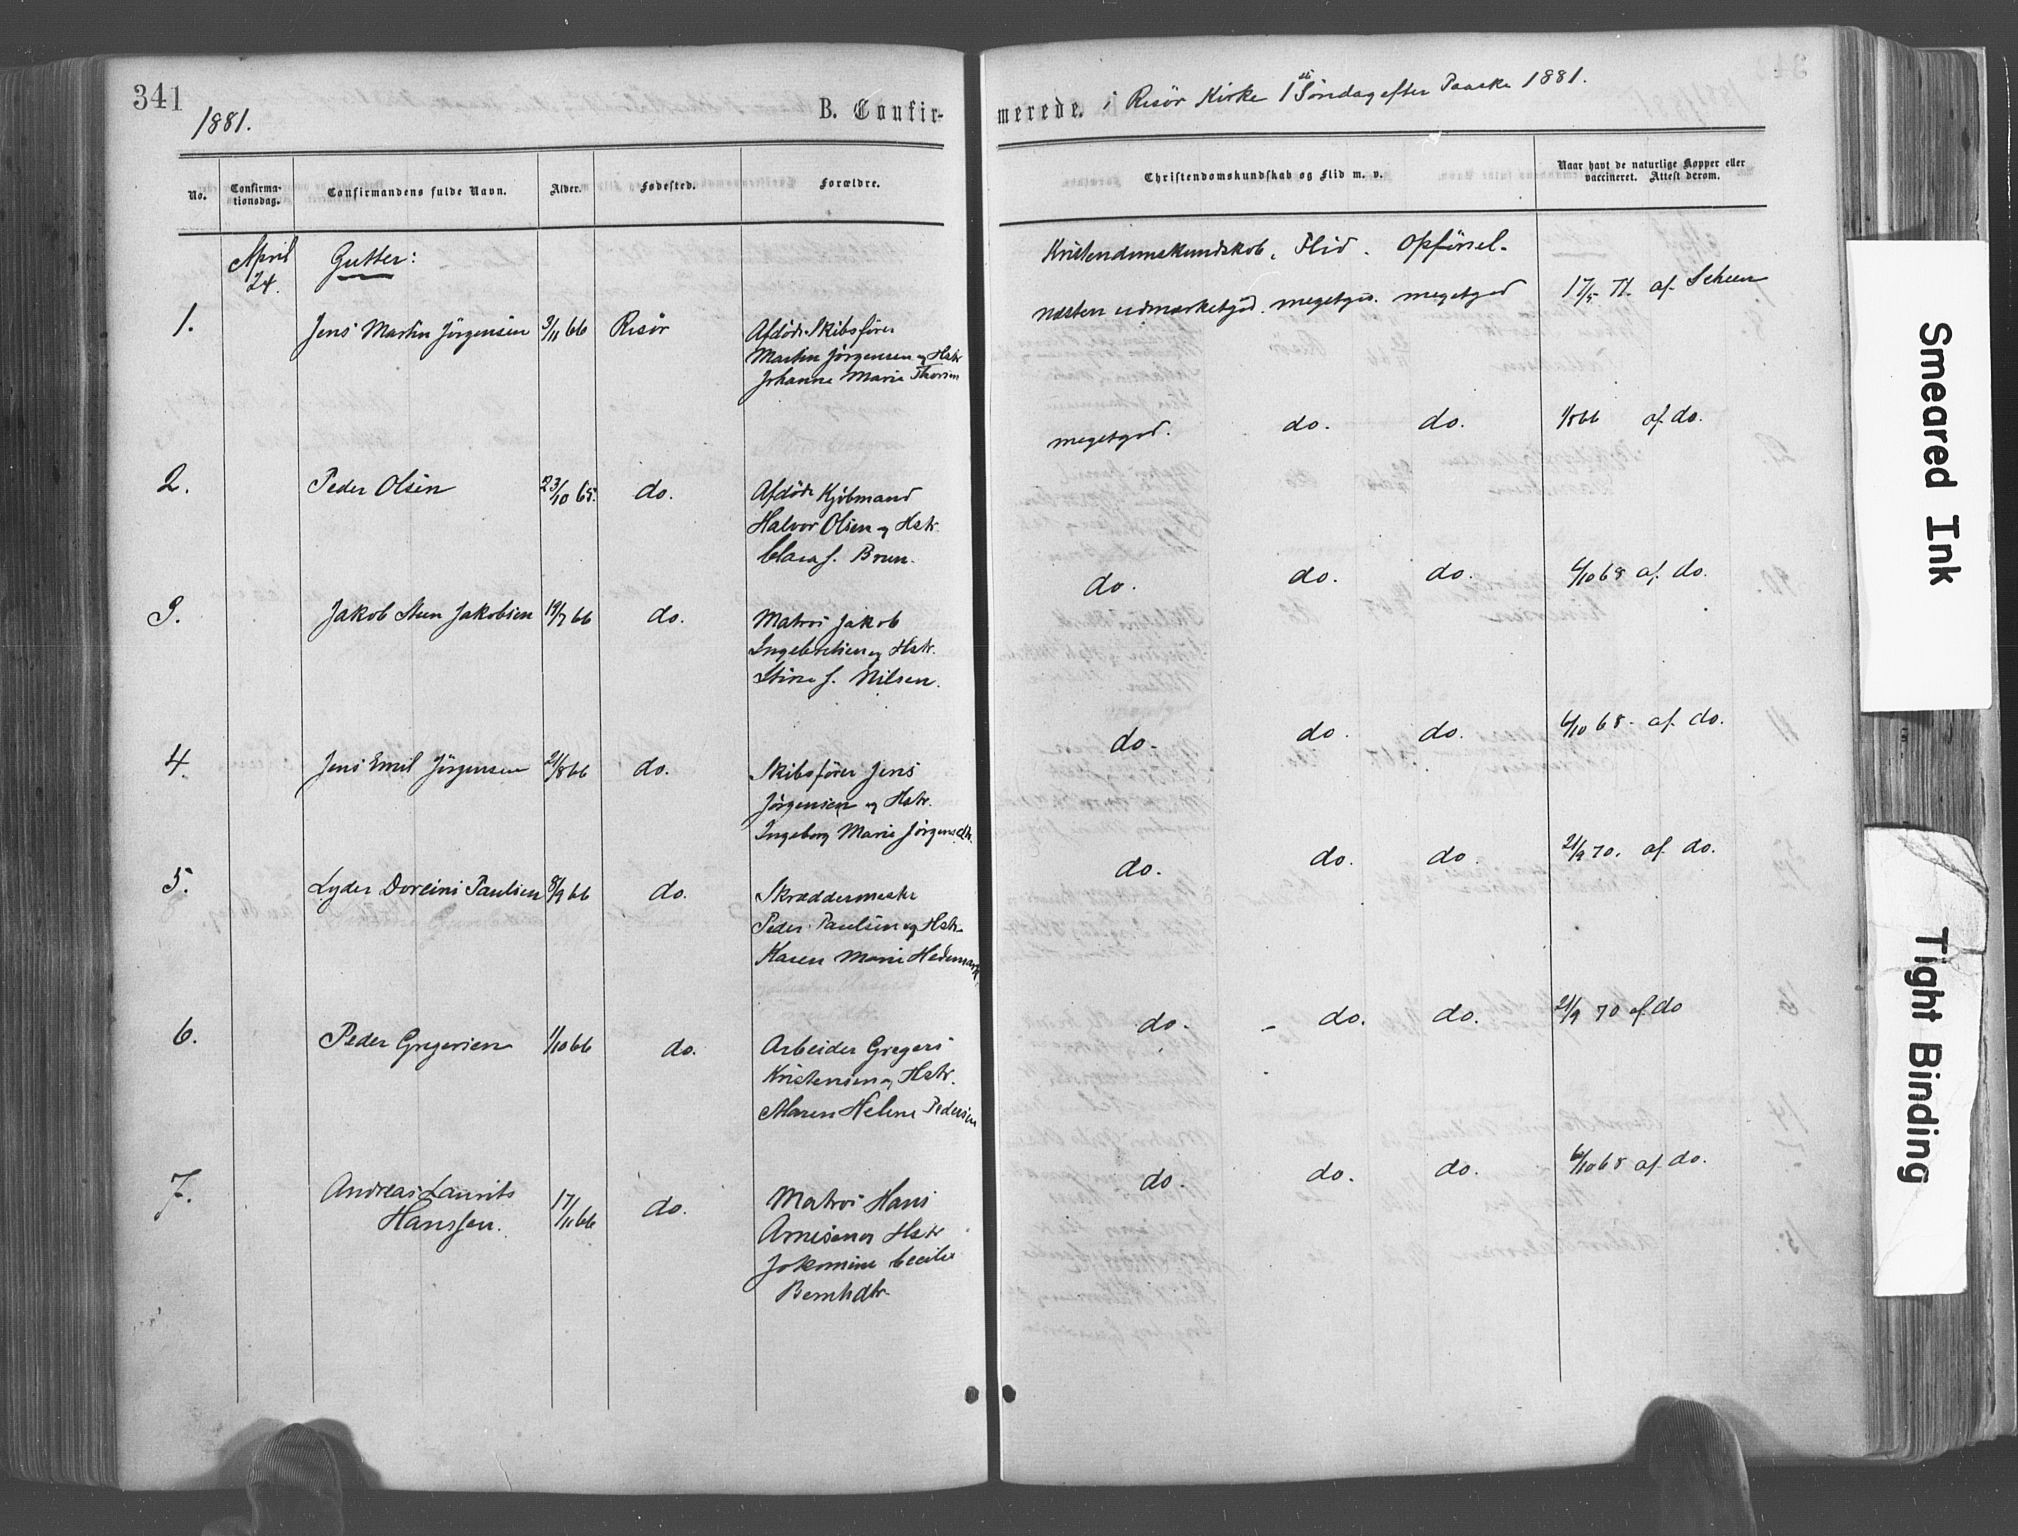 341
1881.
B. Confir-
merede. i Risör Kirke 1ste Söndag efter Paaske 1881.
No.
Confirma-
tionsdag.
Confirmandens fulde Navn.
Alder.
Fødested.
Forældre.
Christendomskundskab og Flid m. v.
Naar havt de naturlige Kopper eller
vaccineret. Attest derom.
April
24.
Gutter:
Kristendomskundskab. Flid. Opförsel.
1.
Jens Martin Jörgensen
3/11 66
Risör
Afdöde Skibsförer
Martin Jörgensen og Hstr
Johanne Marie
Næsten udmærketgod. megetgod. megetgod
17/5 71. af Scheen
2.
Peder Olsen
23/10 65.
do.
Afdöde Kjöbmand
Halvor Olsen og Hstr.
Clara f. Brun.
megetgod.
do.
do.
af do.
3.
Jakob Steen Jakobsen
19/7 66
do.
Matros Jakob
Ingebretsen og Hstr.
Stine f. Nilsen.
do.
do.
do.
6/10 68 af do.
4.
Jens Emil Jörgensen
21/8 66
do.
Skibsförer Jens
Jörgensen og Hstr.
Ingeborg Marie Jörgensdtr.
do.
do.
do.
6/10 68. af do.
5.
Lyder Doreius Paulsen
8/9 66
do.
Skræddermester
Peder Paulsen og Hstr.
Karen Marie Hedemark
do.
do.
do.
21/9 70. af do.
6.
Peder Gregersen
1/10 66
do.
Arbeider Gregers
Kristensen og Hstr.
Maren Helene Pedersen
do.
do.
do.
21/9 70 af do
7.
Andreas Laurits
Hanssen.
17/11 66
do.
Matros Hans
Arnesen og Hstr
Jokomine Cecilie
Berntsdtr.
do.
do.
do.
6/10 68 af do.
Smeared Ink
Tight Binding